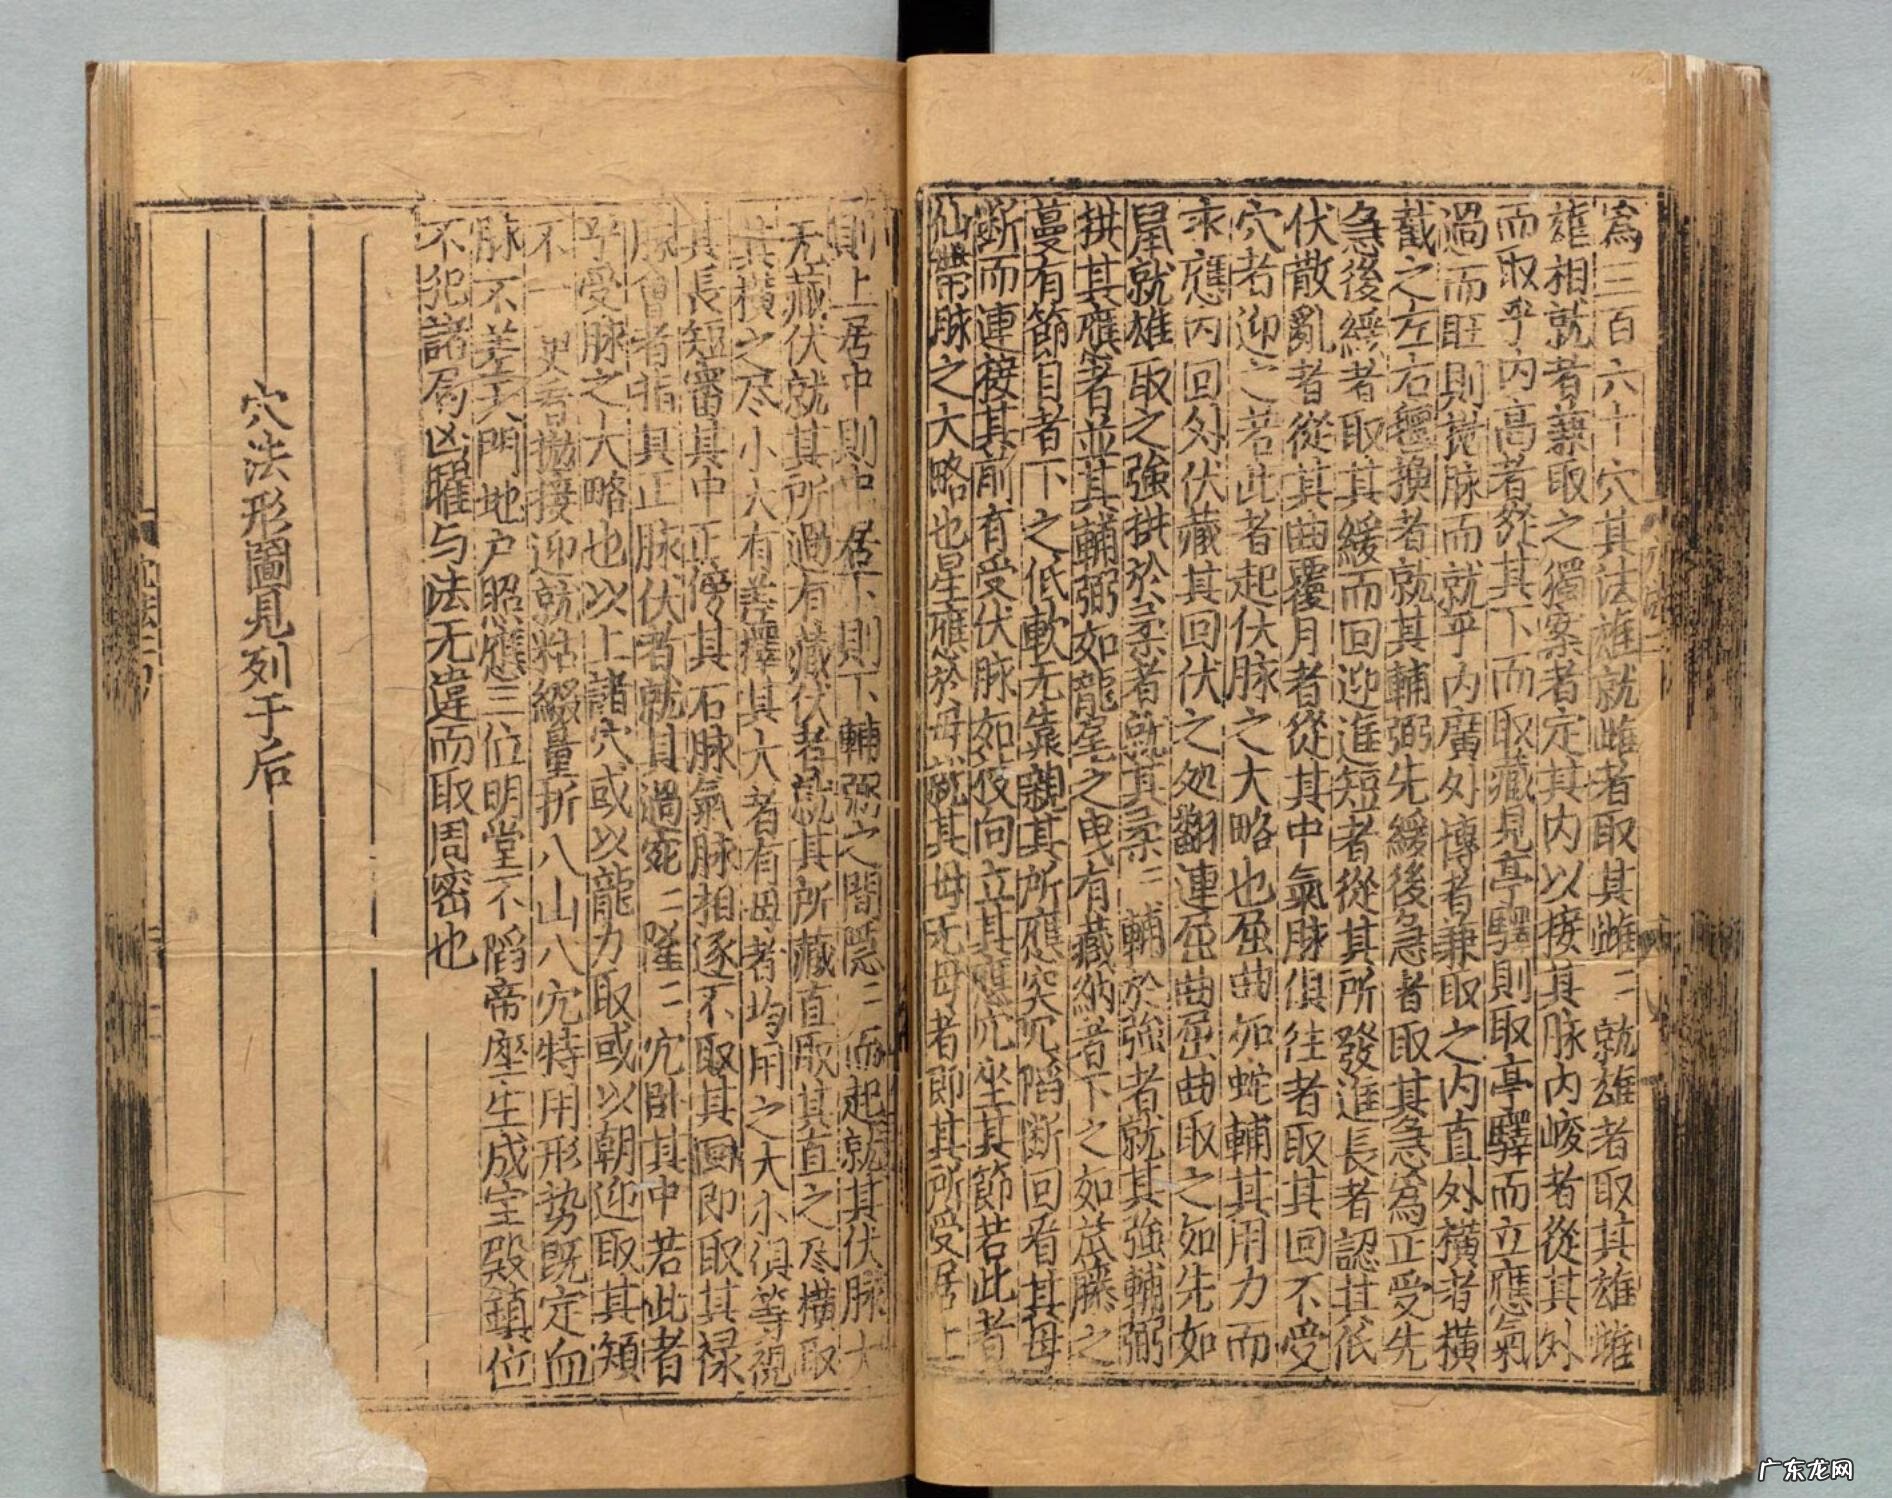 為三百六十穴其法雄就雌者取其雌二就雄者取其雄雌
雄相就者兼取之獨案者定其内以接其脉内峻者從其外
而取乎内高者從其下而取藏見亭驛則取亭驛而立應氣
過而旺則攬脉而就乎内廣外博者兼取之内直外橫者橫
截之左右翻換者就其輔弼先緩後急者取其急為正受先
急後緩者取其緩而回迎進短者從其所發進長者認其低
伏散亂者從其曲覆月者從其中氣脉俱往者取其回不受
穴者迎之若此者起伏脉之大略也屈曲如蛇輔其用力而
求應内回外伏藏其回伏之処翻連屈曲屈曲取之如先如
就雄取之強拱於柔者就其柔二輔於強者就其強輔弼
拱其應者並其輔弼如龍尾之曳有藏納者下之如瓜藤之
蔓有節目者下之低軟无靠親其所應突陷断回看其母
断而連接其前有受伏脉如筱向立其應穴坐其節若此者
仙帶脉之大略也星應於母就其母无母者即其所受居上
則上居中則中居下則下輔弼之間隱二而起就其伏脉大
无藏伏就其所過有藏伏者就其所藏直取其直之尽橫取
其橫之尽小大有善擇其大者有母者均用之大小俱等視
其長短審其中正傍其石脉氣脉相逐不取其回即取其禄
脉會者指其正脉伏者就其過宛二隆二穴卧其中若此者
乎受脉之大略也以上諸穴或以龍力取或以朝迎取其類
不一更看拋接迎就粘綴量折八山八穴特用形势既定血
脉不差天門地户照應三位明堂不陷帝座生成宝殿鎮位
不犯諸局凶曜与法无違而取周密也
穴法形圖見列于后
广东龙网